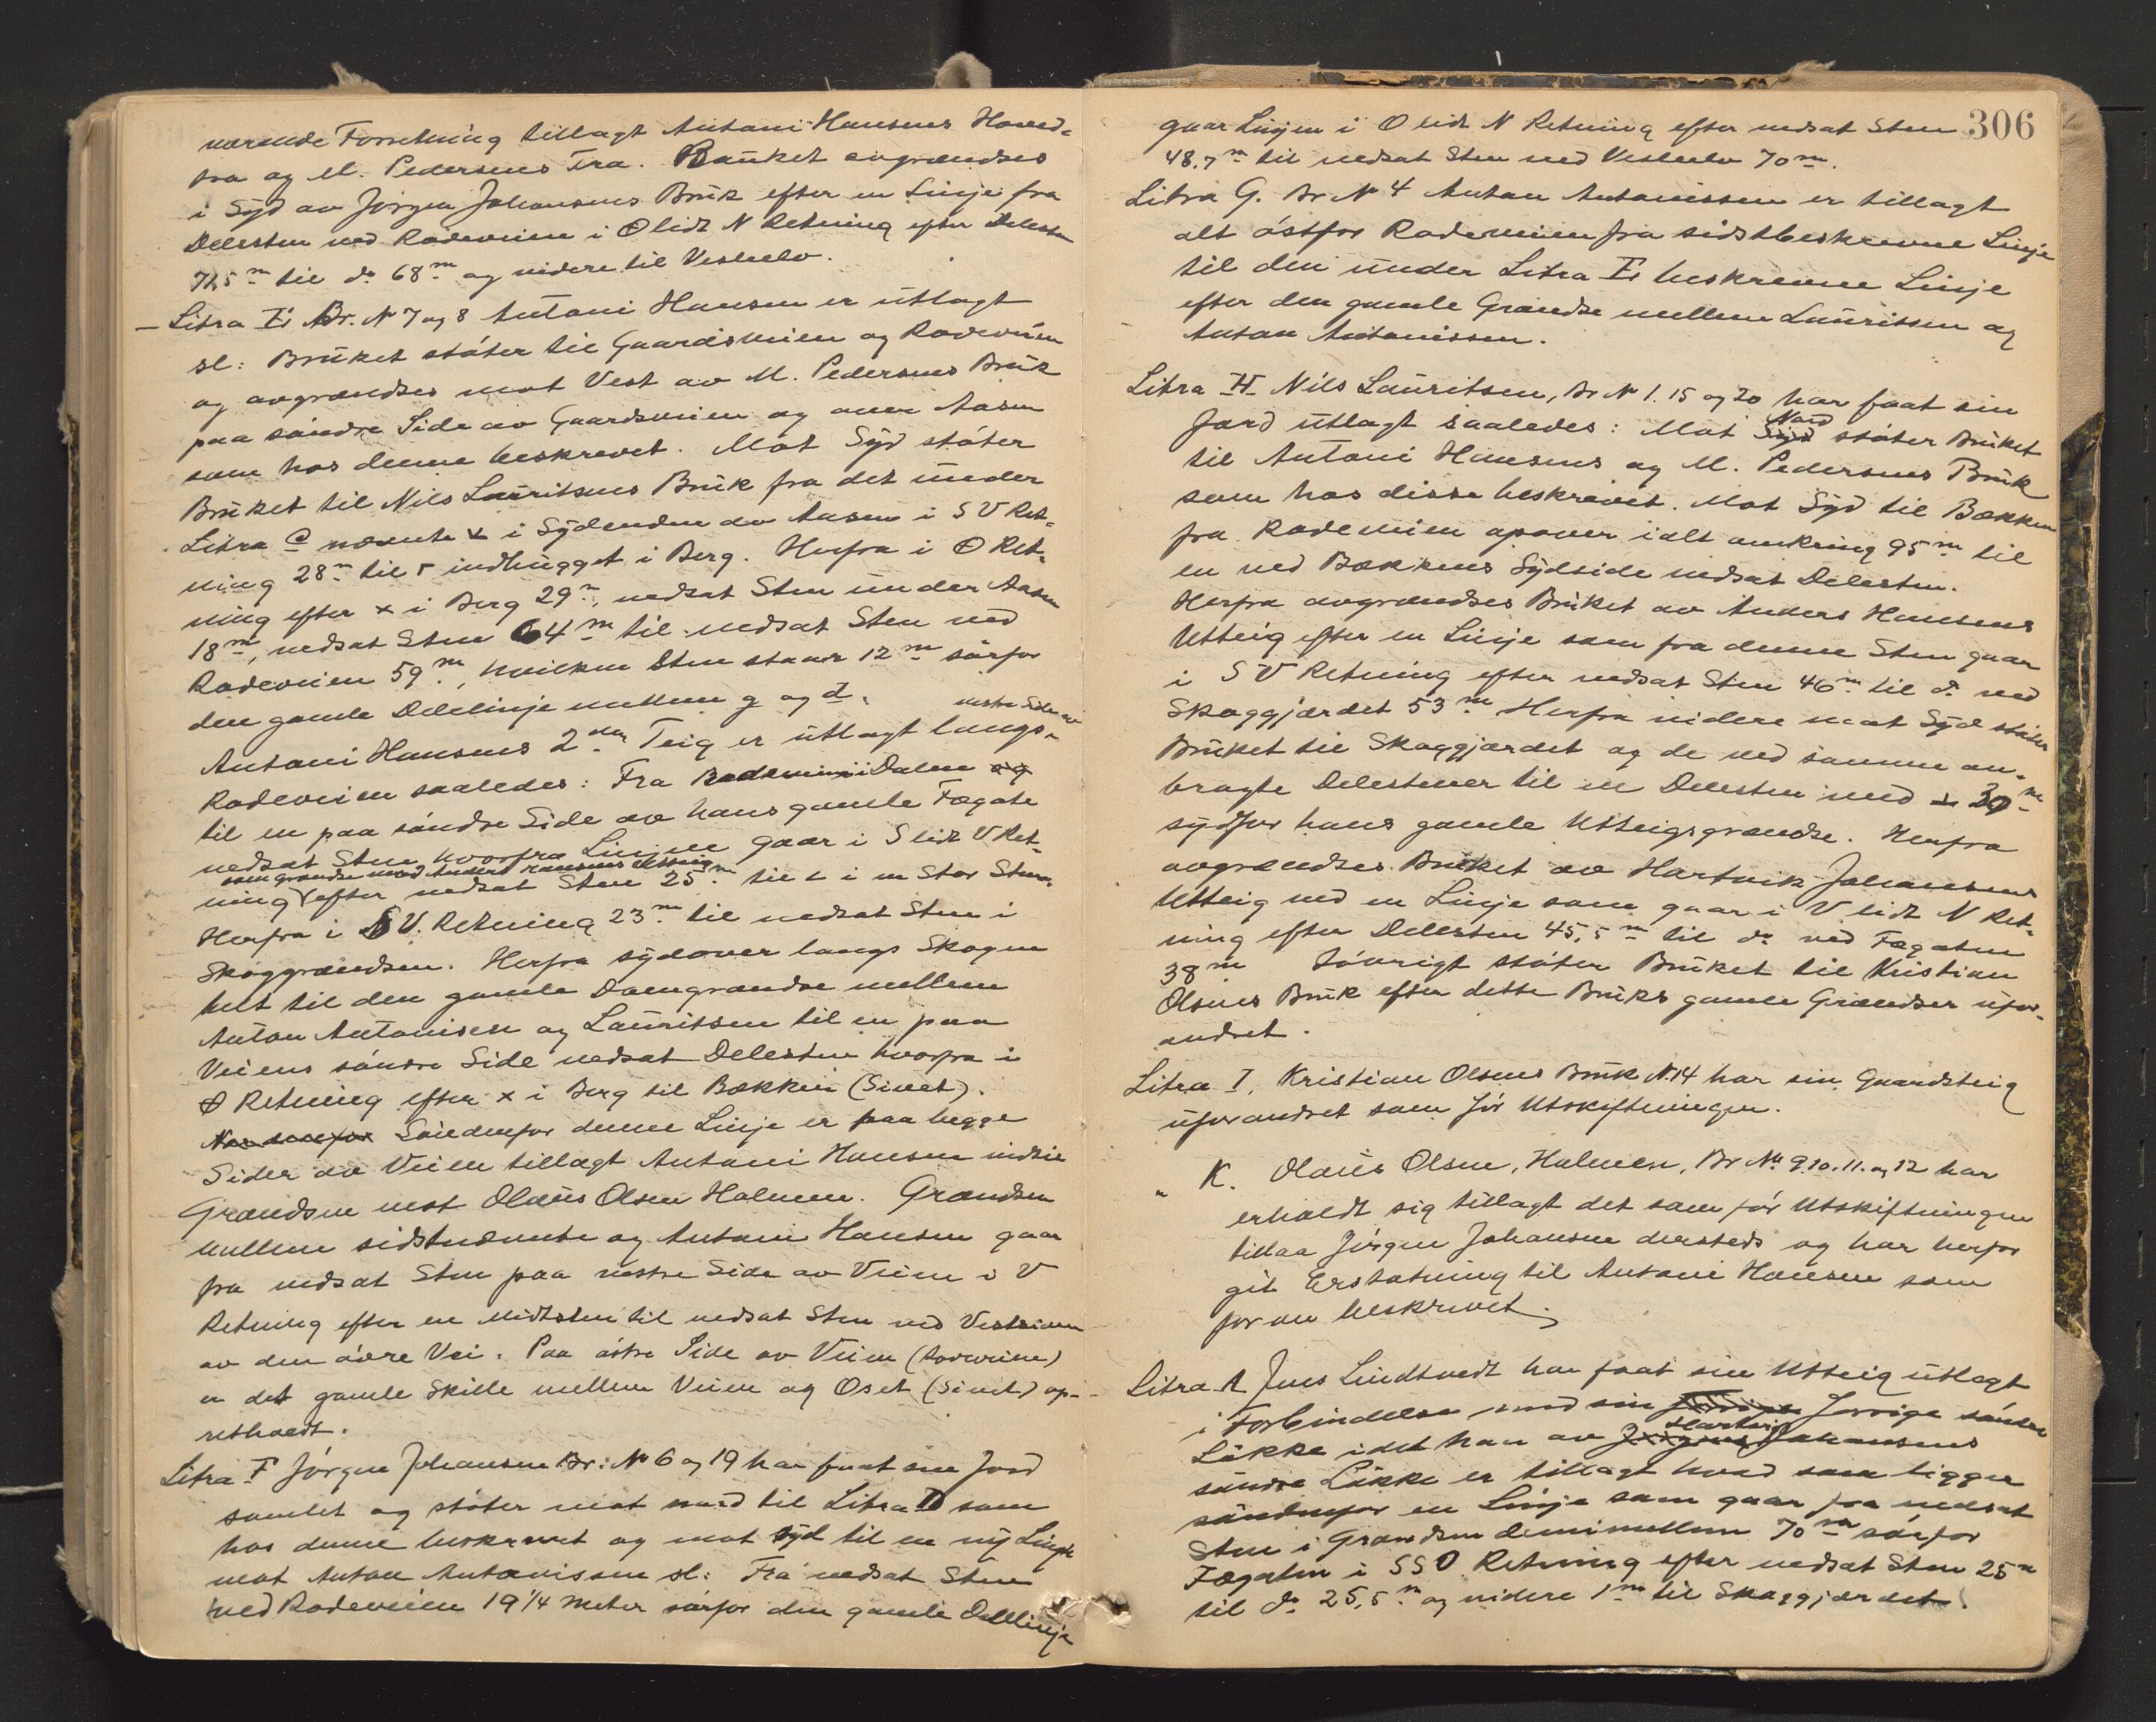 værende Forretning tillagt Antoni Hansens Hoved-
fra og M. Pedersens Fra. Bruket avgrændses
i Syd av Jørgen Johansens Bruk efter en Linje fra
Delesten ved Rodeveien i O lidt N Retning efter Delesten
71,5 m til do 68 m og videre til Vestelv.
– Litra E Br. N 7 og 8 Antoni Hansen er utlagt
sl: Bruket støter til Gaardsveien og Rodeveien
og avgrændses mot Vest av M. Pedersens Bruk
paa søndre Side av Gaardsveien og over Aasen
som hos denne beskrevet. Mot Syd støter
Bruket til Nils Lauritsens Bruk fra det under
Litra C nævnte x i Sydenden av Aasen i S V Ret-
ning 28 m til r indhugget i Berg. Herfra i O Ret-
ning efter x i Berg 29 m, nedsat Sten under Aasen
18 m, nedsat Sten 64 m til nedsat Sten ved
Rodeveien 59 m, hvilken Sten staar 12 m sørfor
den gamle Delelinje mellem g og d.
Antoni Hansens 2den Teig er utlagt langs vestre Side av
Rodeveien saaledes: Fra Rodeveien i Dalen og
til en paa søndre Side av hans gamle Fægate
nedsat Sten hvorfra Linjen gaar i S lidt V Ret-
ning som grændse mod Anders Hansens Utteig efter nedsat Sten 25 m til + i en Stor Sten.
Herfra i S V. Retning 23 m til nedsat Sten i
Skoggrændsen. Herfra sydover langs Skogen
helt til den gamle grændse mellem
Anton Antonisen og Lauritssen til en paa
Veiens søndre Side nedsat Delesten hvorfra i
O Retning efter x i Berg til Bækken (Sivet).
Nordenfor Søndenfor denne Linje er paa begge
Sider av Veien tillagt Antoni Hansen indtil
Grændsen mot Olaus Olsen Holmen. Grændsen
mellem sidstnævnte og Antoni Hansen gaar
fra nedsat Sten paa vestre Side av Veien i V
Retning efter en Midtsten til nedsat Sten ved
av den øvre Vei. Paa østre Side av Veien (Rodeveien)
er det gamle Skille mellem Veien og Oset (Sivet) op-
retholdt.
Litra F Jørgen Johansen Br: N 6 og 19 har faat sin Jord
samlet og støter mot nord til Litra D som
hos denne beskrevet og mot syd til en ny Linje
mot Anton Antonissen sl: Fra nedsat Sten
ved Rodeveien 19 1/4 meter sørfor den gamle Delelinje
306
gaar Linjen i O lidt N Retning efter nedsat Sten
48.7 m til nedsat Sten ved Vestelv 70 m.
Litra G. Br N 4 Anton Antonissen er tillagt
alt østfor Rodeveien fra sidstbeskrevne Linje
til den under Litra E beskrevne Linje
efter den gamle Grændse mellem Lauritssen og
Anton Antonissen.
Litra H Nils Lauritsen, Br N 1. 15 og 20 har faat sin
Jord utlagt saaledes: Mot Syd Nord støter Bruket
til Antoni Hansens og M. Pedersens Bruk
som hos disse beskrevet. Mot Syd til Bækken
fra Rodeveien opover ialt omkring 95 m til
en ved Bækkens Sydside nedsat Delesten.
Herfra avgrændses Bruket av Anders Hansens
Utteig efter en Linje som fra denne Sten gaar
i S V Retning efter nedsat Sten 46 m til do ved
Skoggjærdet 53 m Herfra videre mot Syd støter
Bruket til Skoggjærdet og de ved samme an-
bragte Delestener til en Delesten med 30 m
sydfor hans gamle Utteigsgrændse. Herfra
avgrændses Bruket av Hartvik Johansens
Utteig ved en Linje som gaar i V lidt N Ret-
ning efter Delesten 45,5 m til do ved Fægaten
38 m Iøvrigt støter Bruket til Kristian
Olsens Bruk efter dette Bruks gamle Grændser ufor-
andret.
Litra I, Kristian Olsens Bruk N. 14 har sin Gaardsteig
uforandret som før Utskiftningen.
" K. Olaus Olsen, Holmen, Br No 9. 10. 11. og 12 har
erholdt sig tillagt det som før Utskiftningen
tillaa Jørgen Johansen dersteds og har herfor
git Erstatning til Antoni Hansen som
foran beskrevet.
Litra A Jens Lindtvedt har faat sin Utteig utlagt
i Forbindelse med sin forrige søndre
Løkke idet han av Jørgens Hartvig Johansens
søndre Løkke er tillagt hvad som ligger
søndenfor en Linje som gaar fra nedsat
Sten i Grændsen demimellem 70 m sørfor
Fægaten i S S O. Retning efter nedsat Sten 25 m
til do 25,5 m og videre 1 m til Skoggjærdet.